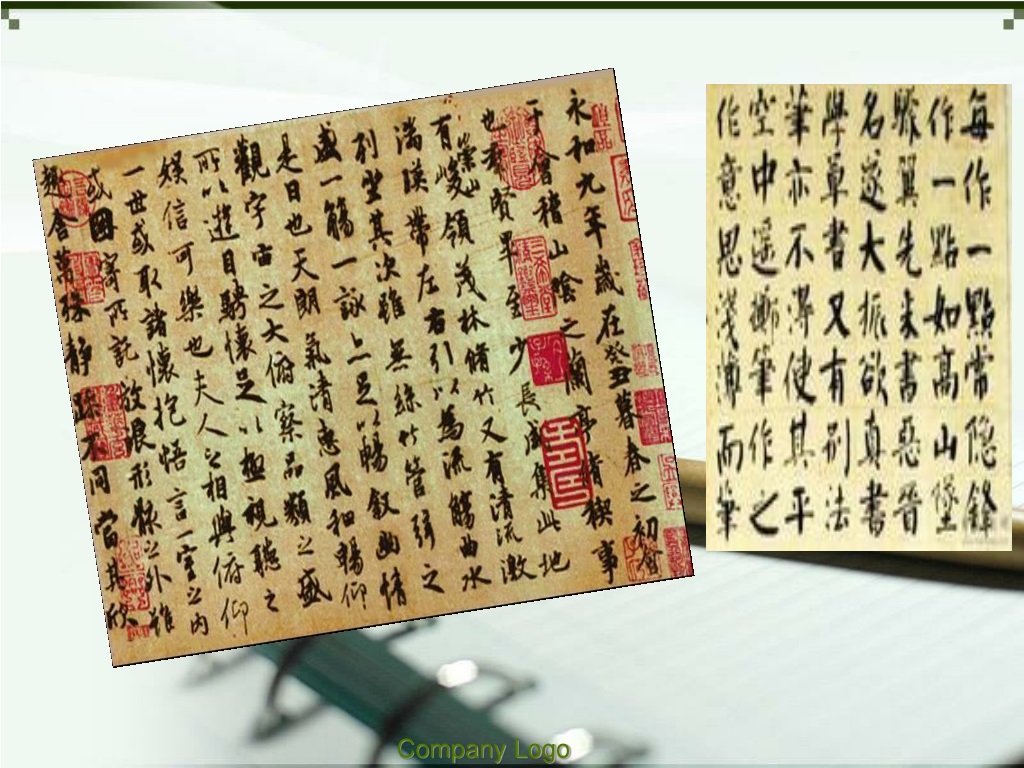 永和九年歲在癸丑暮春之初會
于會稽山陰之蘭亭脩稧事
也羣賢畢至少長咸集此地
有崇山峻領茂林脩竹又有清流激
湍暎帶左右引以為流觴曲水
列坐其次雖無絲竹管弦之
盛一觴一詠亦足以暢敘幽情
是日也天朗氣清惠風和暢仰
觀宇宙之大俯察品類之盛
所以遊目騁懷足以極視聽之
娛信可樂也夫人之相與俯仰
一世或取諸懷抱悟言一室之內
或因寄所託放浪形骸之外雖
趣舍萬殊靜躁不同當其欣
每作一點常隱鋒
作一點如高山墜
驟翼先未書惡晉
名遂大振欲真書
學草書又有別法
筆亦不得使其平
空中遥擲筆作之
作意思淺薄而筆
Company Logo